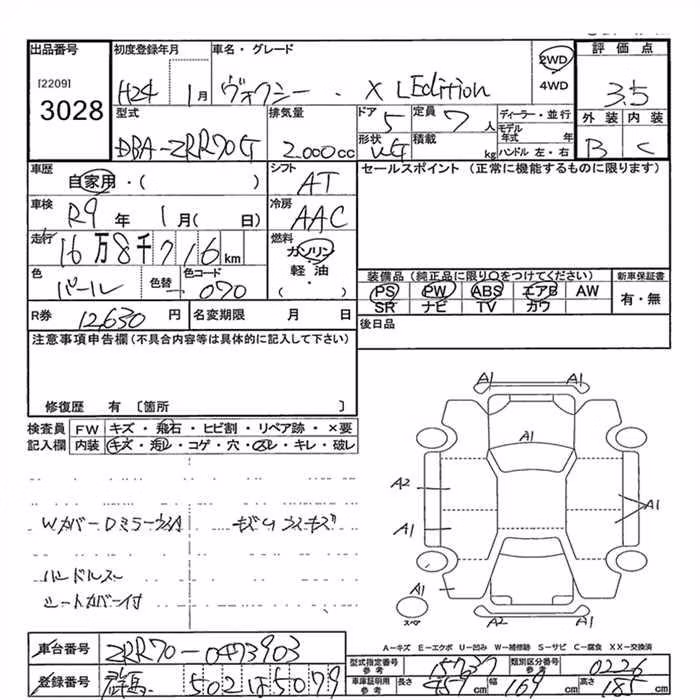 出品番号 初度登録年月 車名・グレード 2WD 評価点
[2209] 3028 H24 1月 ヴォクシー . X L Edition 4WD 3.5
型式 排気量 ドア 定員 ディーラー・並行 外装 内装
DBA-ZRR70G 2.000cc 5 7人 モデル年式 年 B C
形状 積載 kg ハンドル 左・右
車歴 シフト セールスポイント (正常に機能するものに限ります)
自家用・( ) AT
車検 冷房
R9年 1月( 日) AAC
走行 16万8千716km 燃料 ガソリン
色 色替 色コード 軽油 装備品 (純正品に限り○をつけてください) 新車保証書
パール - 070 ・( ) PS PW ABS エアB AW 有・無
SR ナビ TV カワ
R券 12,630円 名変期限 月 日 後日品
注意事項申告欄(不具合内容等は具体的に記入して下さい)
修復歴 有 〔箇所 〕
検査員 FW キズ・飛石・ヒビ割・リペア跡・×要
記入欄 内装 キズ・汚レ・コゲ・穴・スレ・キレ・破レ
A1 A1
A1
A2
A1 A1
Wカバー Dミラー
ハンドルスレ
シートカバー付
A1
スペア A2 A1
A-キズ E-エクボ U-凹み W-補修跡 S-サビ C-腐食 XX-交換済
車台番号 ZRR70-0493903
型式指定番号 参考 15737 類別区分番号 参考 0226
登録番号 群馬 502 ほ 5079
車庫証明用 参考 長さ 459cm 幅 169cm 高さ 185cm